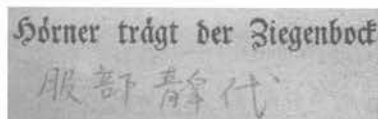 Hörner trägt der Ziegenbock
服部静代